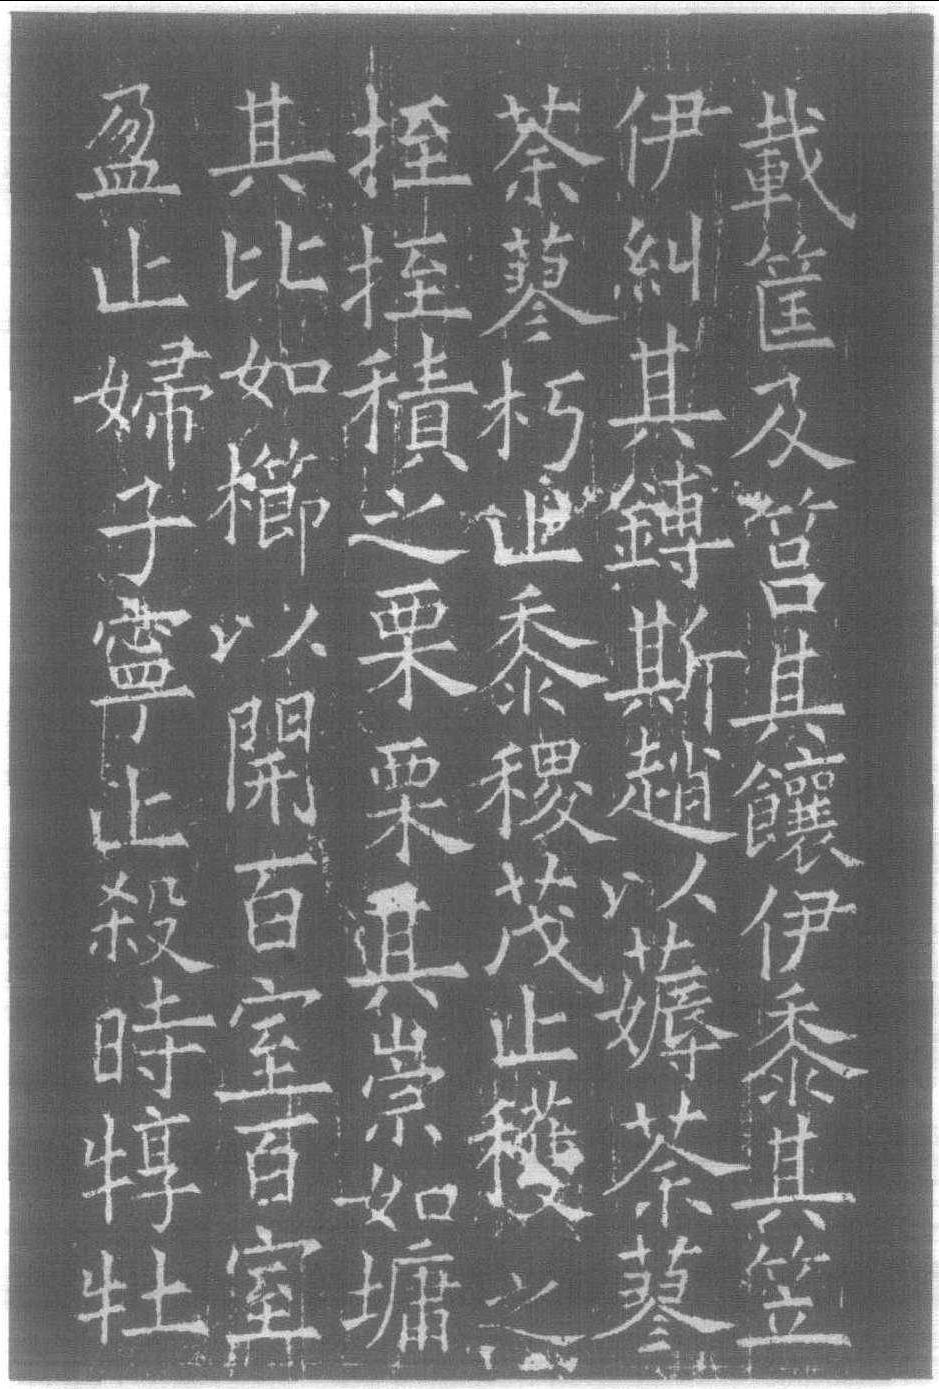 載筐及筥其饟伊黍其笠
伊糾其鎛斯趙以薅荼蓼
荼蓼朽止黍稷茂止穫之
挃挃積之栗栗其崇如墉
其比如櫛以開百室百室
盈止婦子寧止殺時犉牡